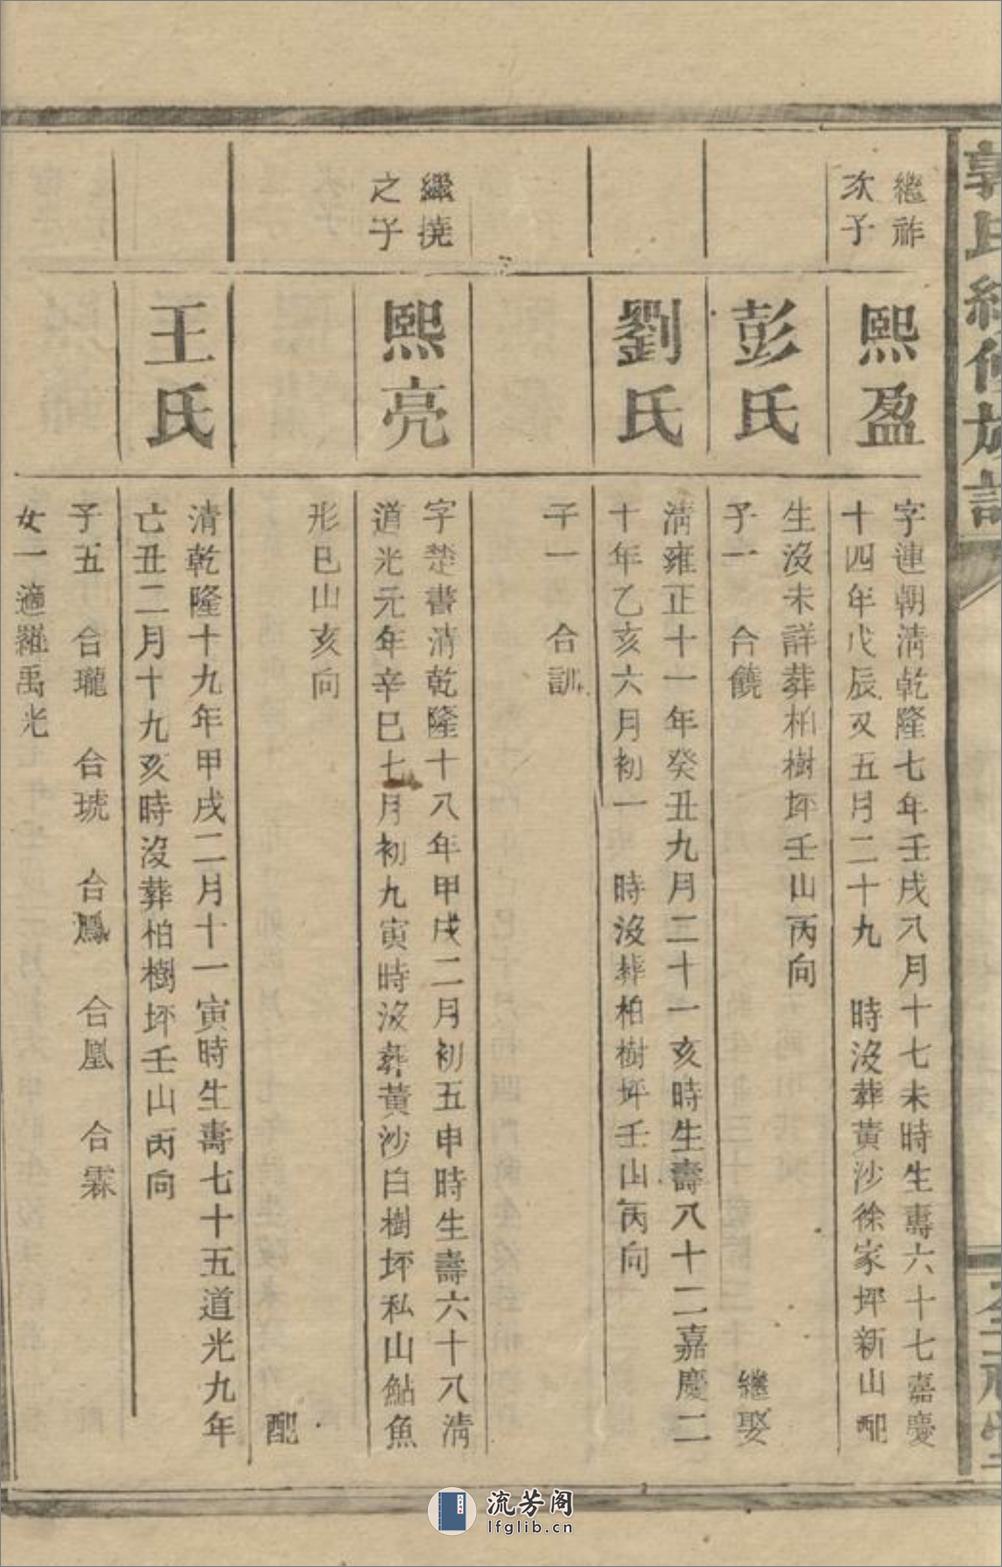 郭氏續修族譜
繼祚
次子
熙盈
字連朝清乾隆七年壬戌八月十七未時生壽六十七嘉慶
十四年戊辰又五月二十九 時沒葬黃沙徐家坪新山 配
彭氏
生沒未詳葬柏樹坪壬山丙向
子一 合饒 繼娶
劉氏
清雍正十一年癸丑九月二十一亥時生壽八十二嘉慶二
十年乙亥六月初一 時沒葬柏樹坪壬山丙向
子一 合訓
繼撓
之子
熙亮
字楚書清乾隆十八年甲戌二月初五申時生壽六十八清
道光元年辛巳七月初九寅時沒葬黃沙白樹坪私山鮎魚
形巳山亥向 配
王氏
清乾隆十九年甲戌二月十一寅時生壽七十五道光九年
亡丑二月十九亥時沒葬柏樹坪壬山丙向
子五 合瓏 合琥 合鳳 合凰 合霖
女一適羅禹光
流芳阁
lfglib.cn